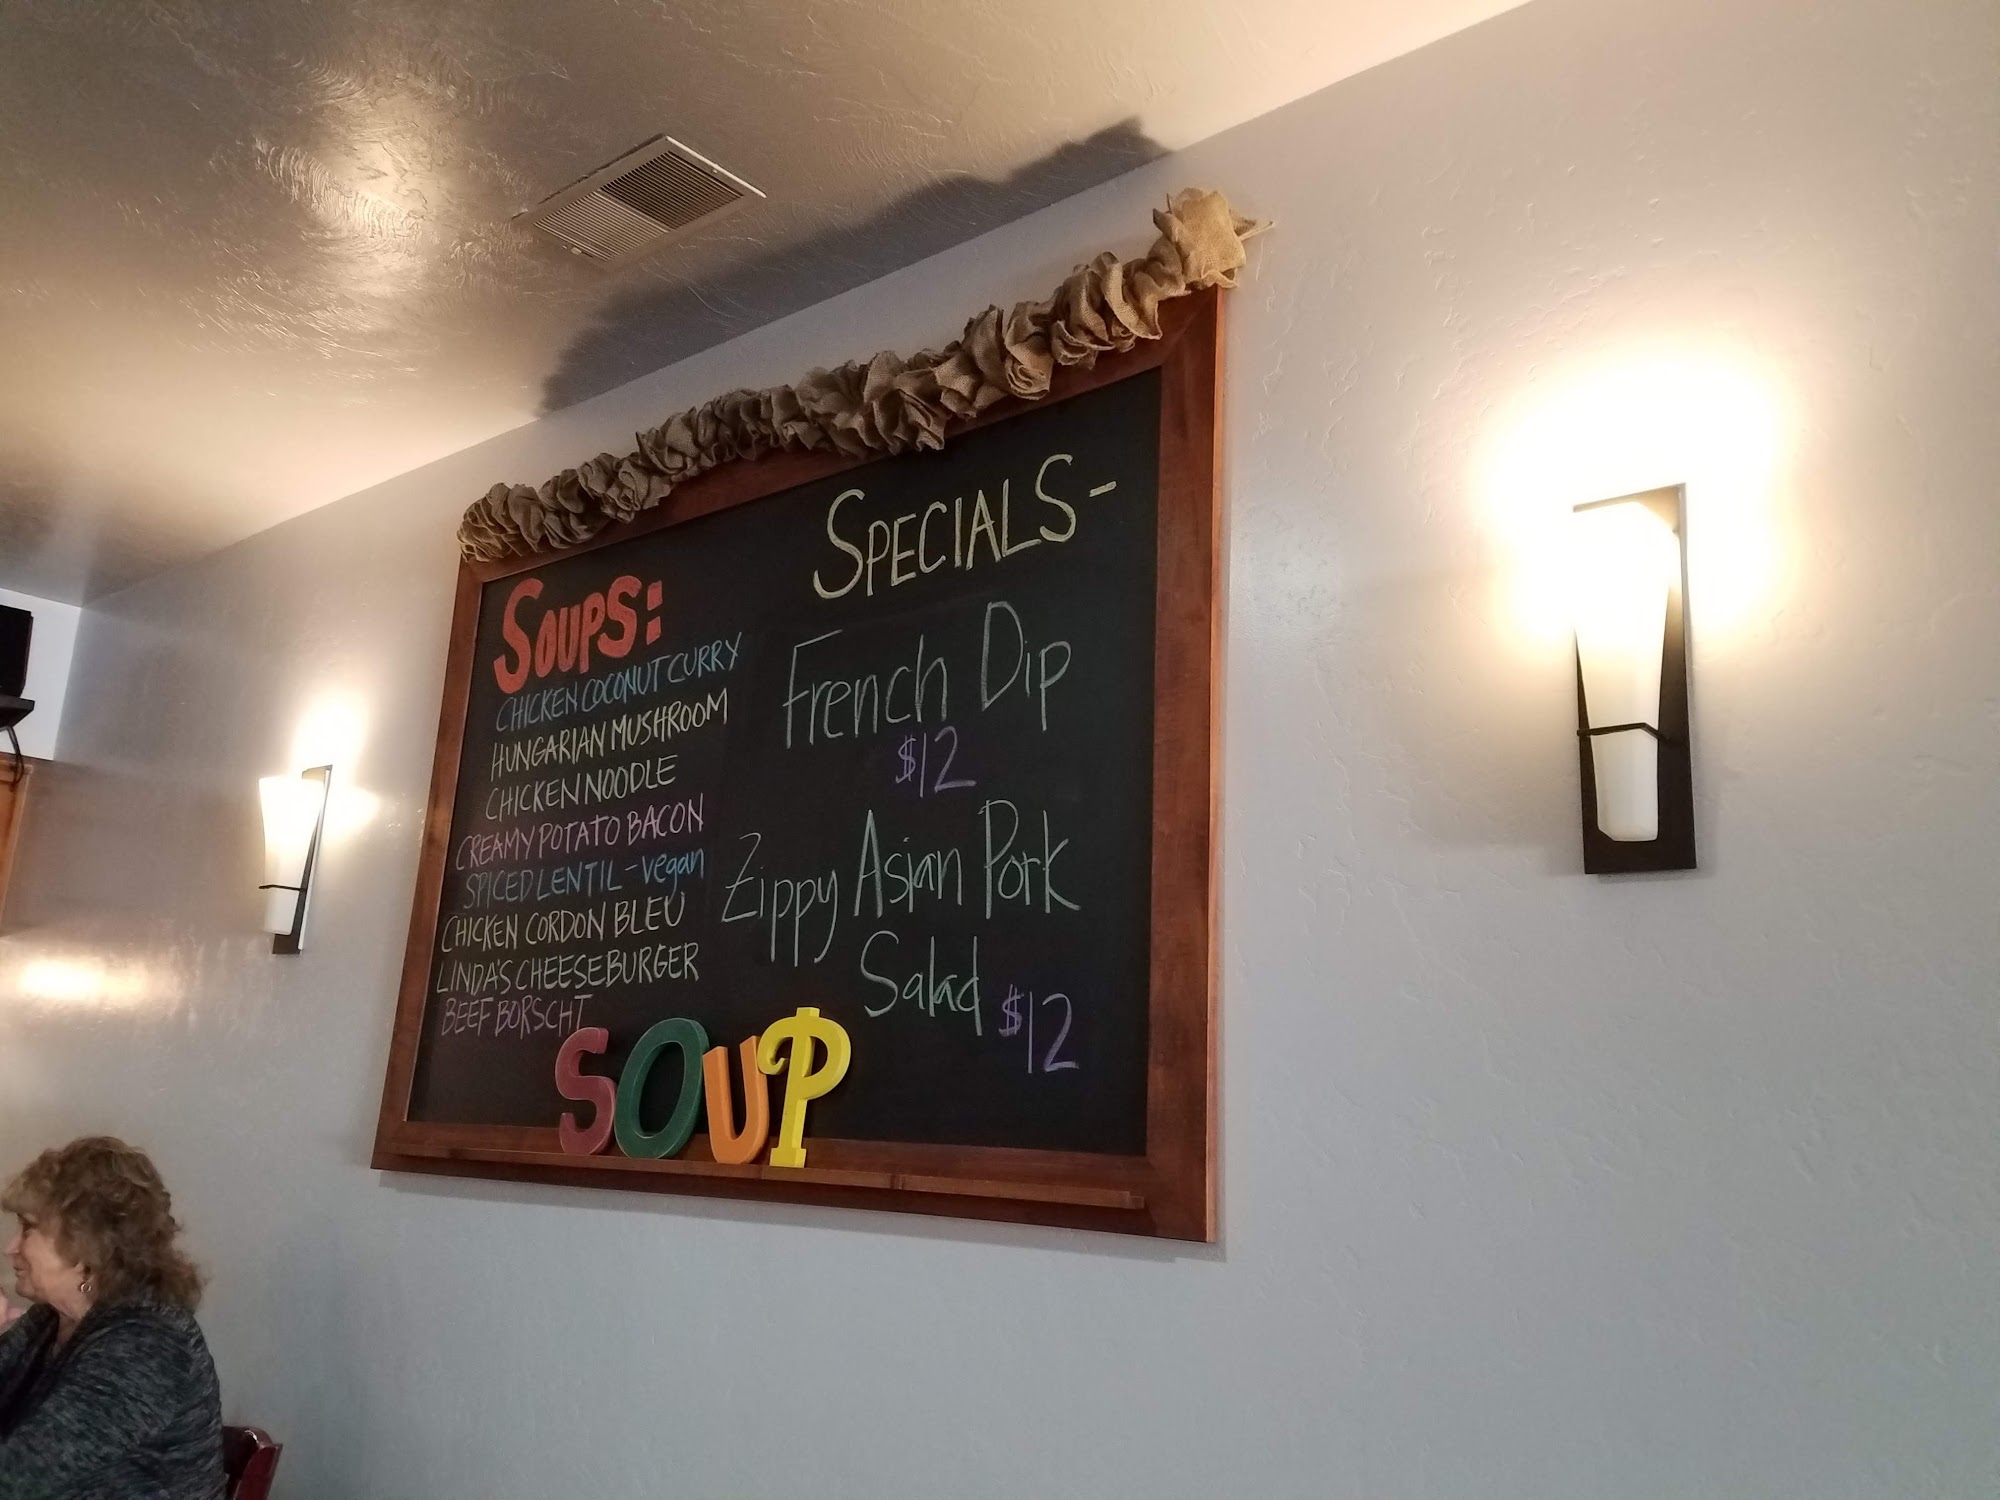 SOUPS:
CHICKEN COCONUT CURRY
HUNGARIAN MUSHROOM
CHICKEN NOODLE
CREAMY POTATO BACON
SPICED LENTIL - vegan
CHICKEN CORDON BLEU
LINDA'S CHEESEBURGER
BEEF BORSCHT
SPECIALS -
French Dip
$12
Zippy Asian Pork
Salad $12
SOUP